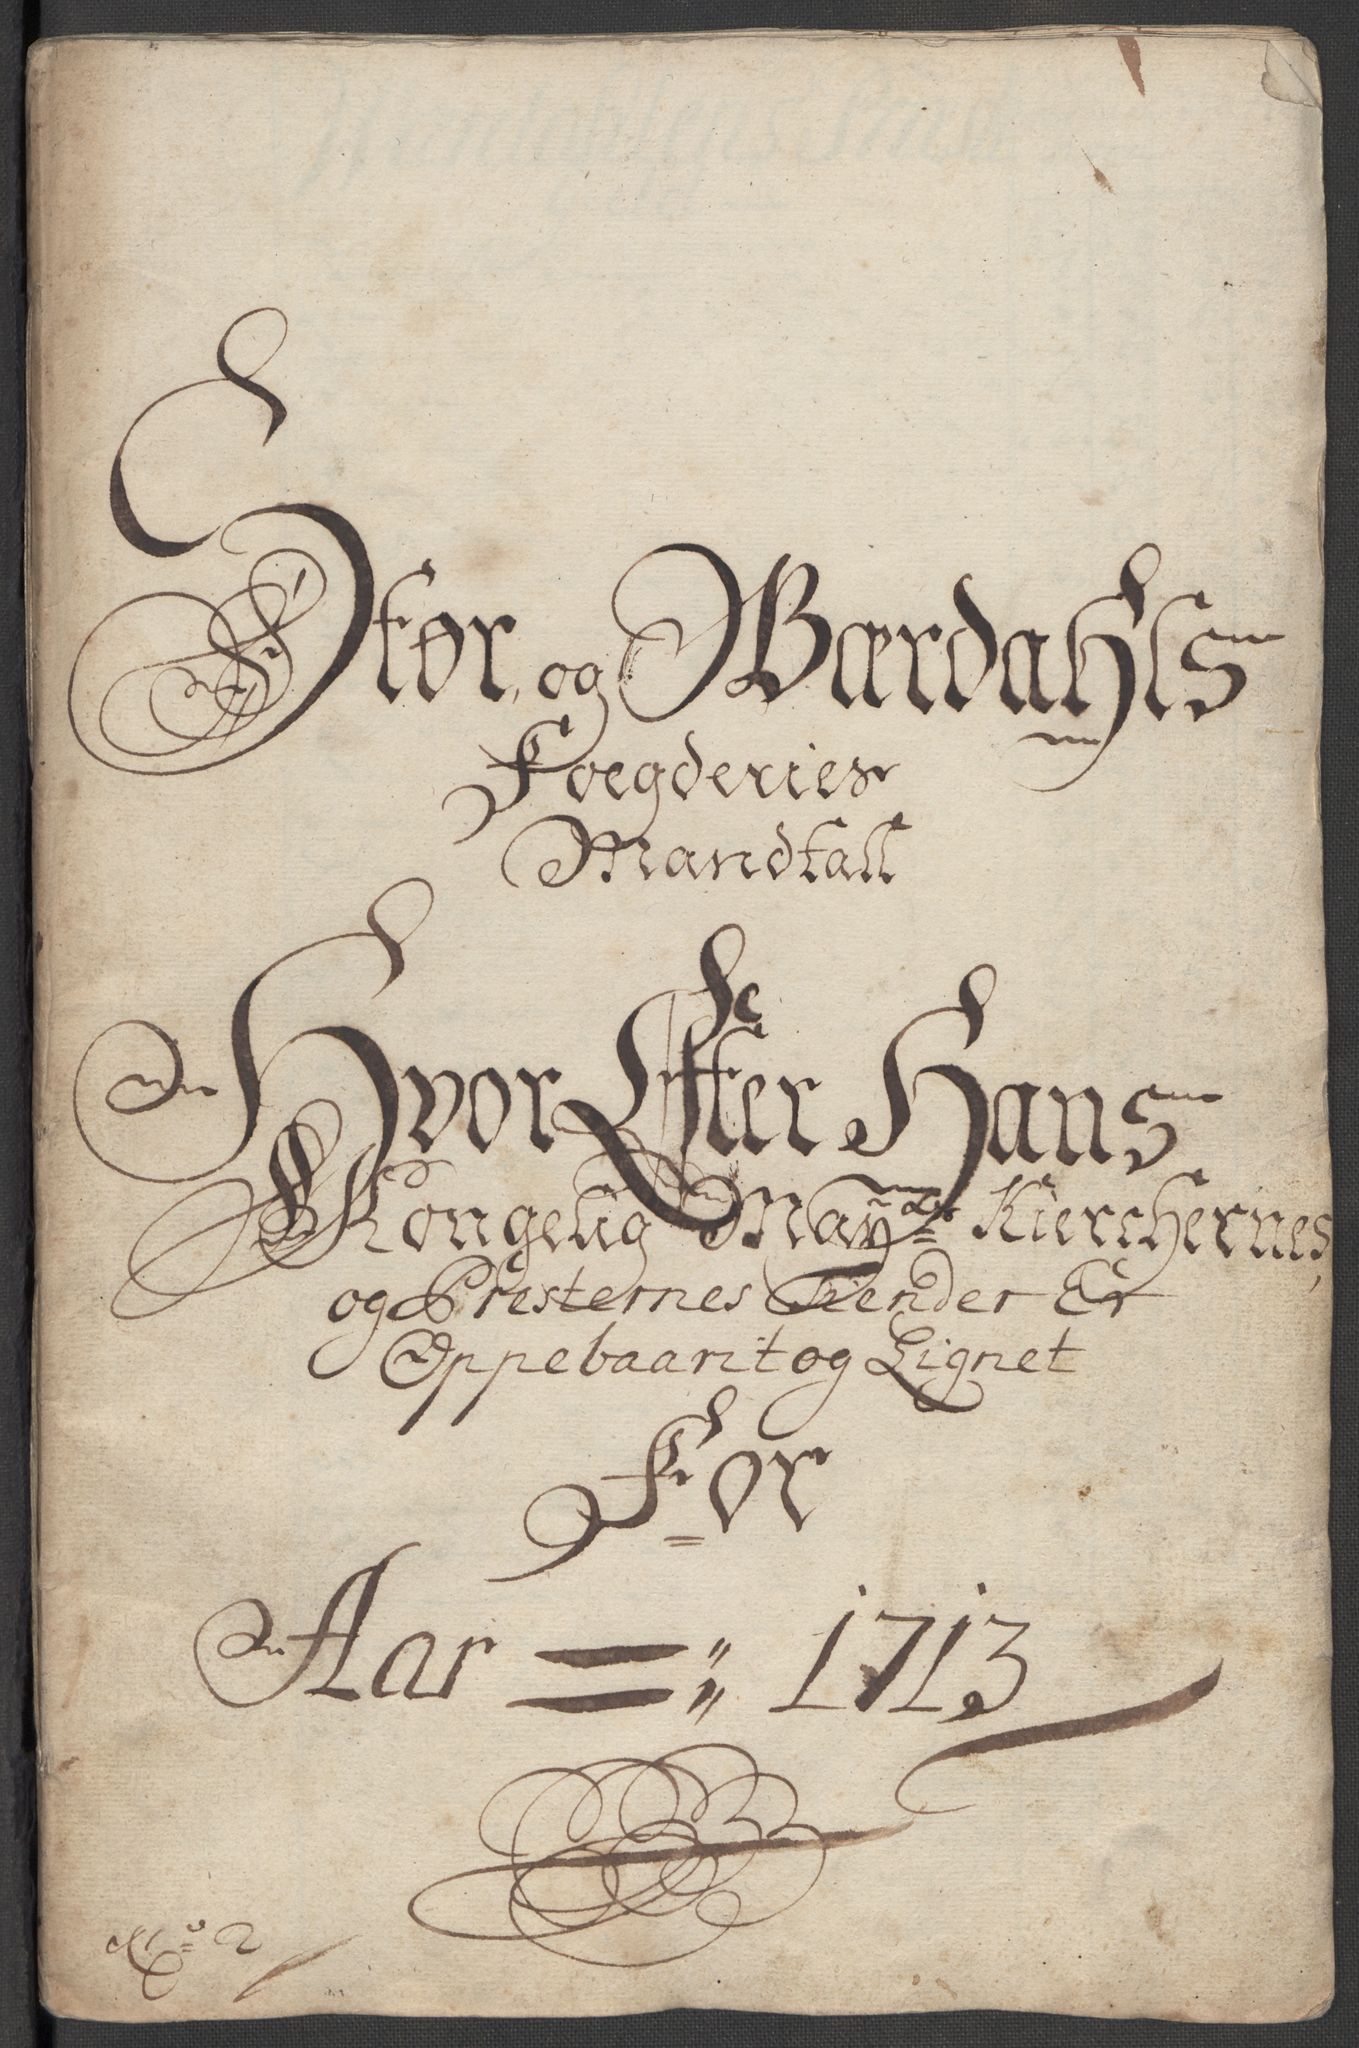 Stør, og Wærdahls
Foegderies
Mandtall
Hvor Effter Hans
Kongelig Mayts Kierchernes,
og Presternes Tiender Er
Oppebaarit og Lignet
For
Aar = 1713
No 2